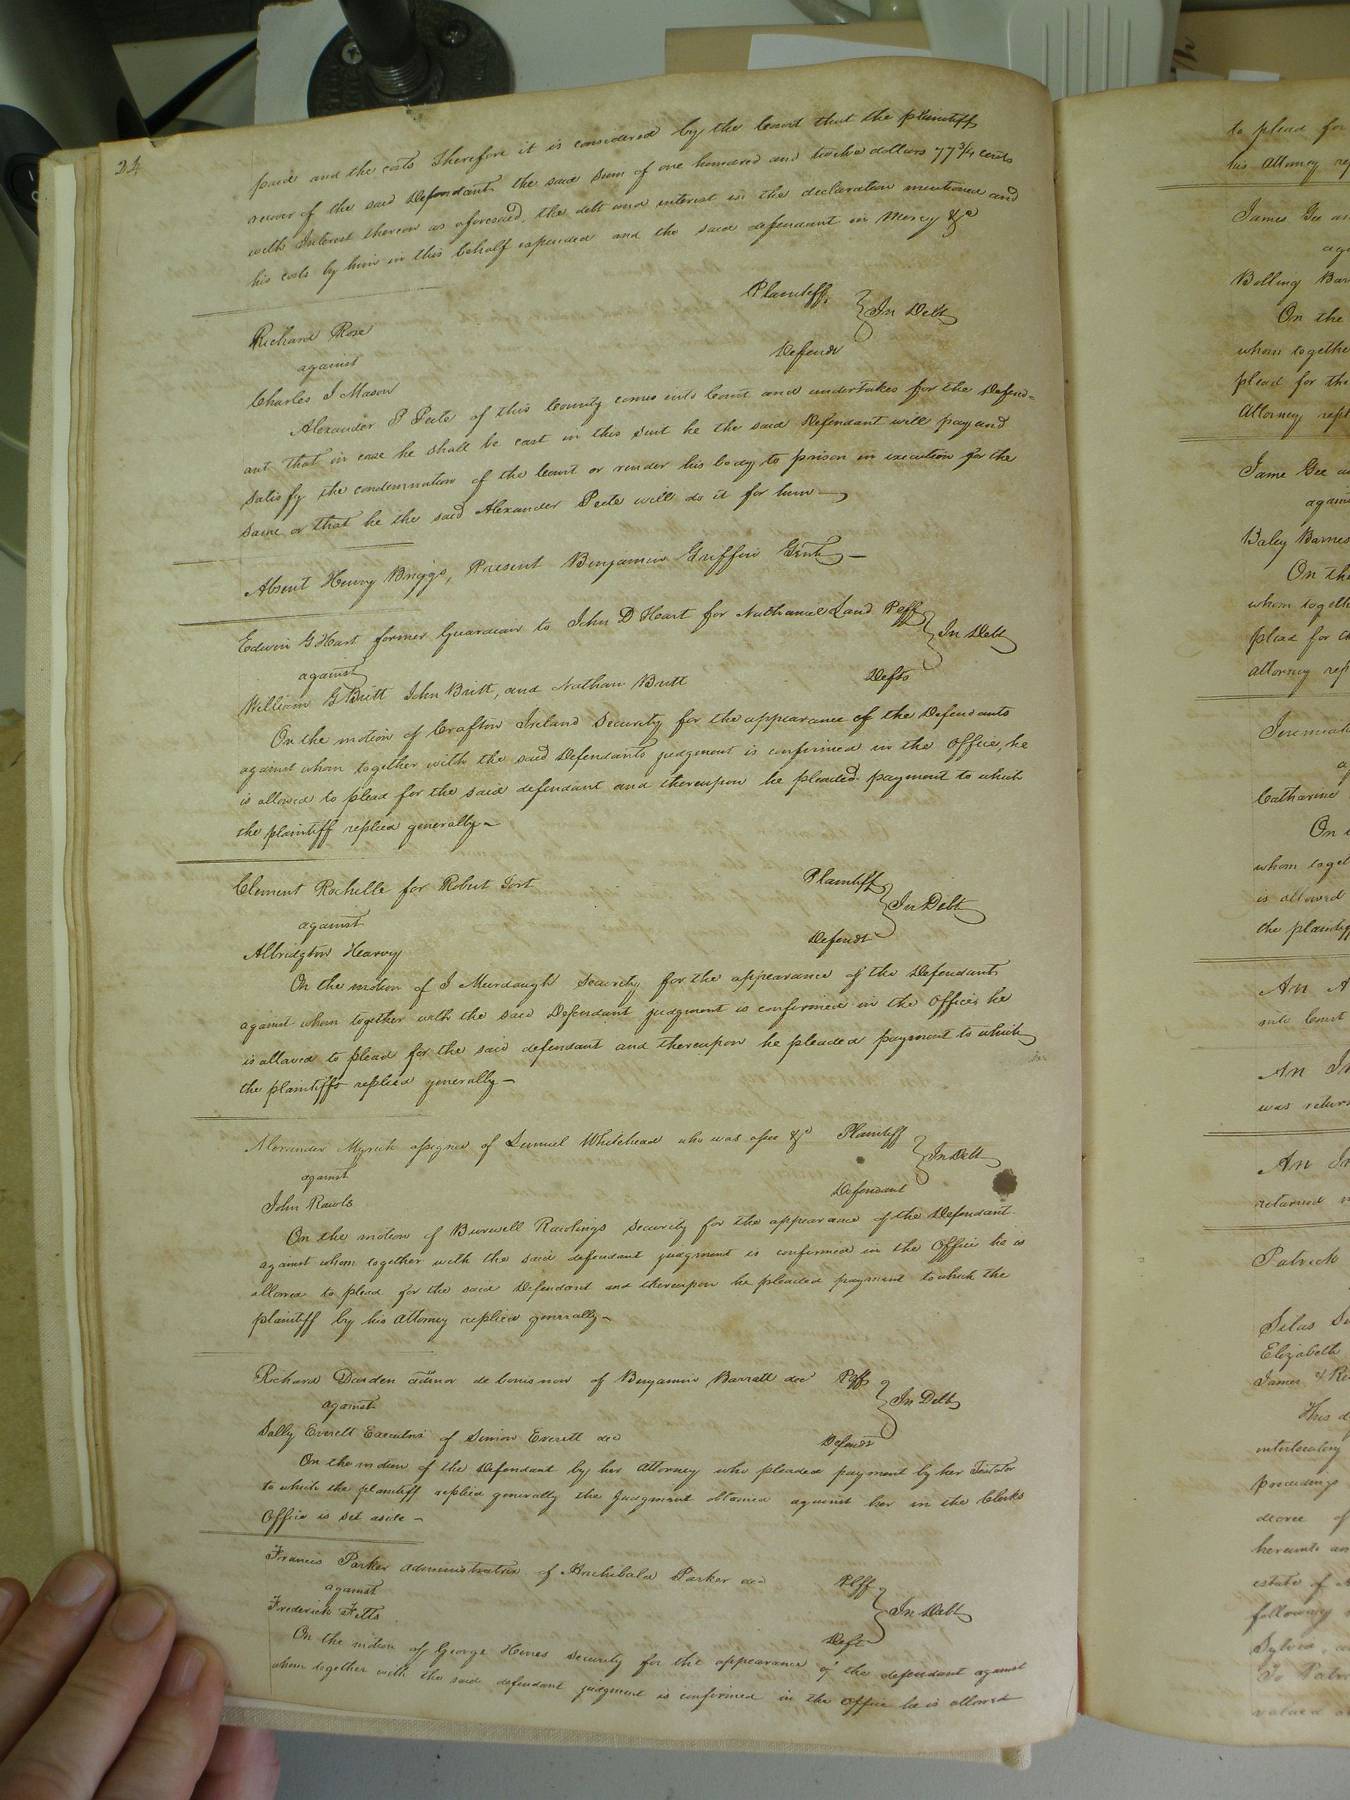 24
paid and the costs Therefore it is considered by the Court that the plaintiff
recover of the said Defendant the said sum of one hundred and twelve dollars 77 3/4 cents
with Interest thereon as aforesaid, the debt and interest in the declaration mentioned and
his costs by him in this behalf expended and the said defendant in Mercy &c
Richard Rose Plaintiff
against In Debt
Charles I Mason Defendt
Alexander P Peete of this County comes into Court and undertakes for the Defend-
ant that in case he shall be cast in this Suit he the said Defendant will pay and
satisfy the condemnation of the Court or render his body to prison in execution for the
same or that he the said Alexander Peete will do it for him
Absent Henry Briggs, Present Benjamin Griffin Gent
Edwin G Hart former Guardian to John D Heart for Nathaniel Land Plff
against In Debt
William G Britt John Britt, and Nathan Britt Defts
On the motion of Crafton Ireland Security for the appearance of the Defendants
against whom together with the said Defendants judgment is confirmed in the office, he
is allowed to plead for the said defendant and thereupon he pleaded payment to which
the plaintiff replied generally
Clement Rochelle for Robert Plaintiff
against In Debt
Albridgton Hearvy Defendt
On the motion of I Murdaugh Security for the appearance of the Defendants
against whom together with the said Defendant judgment is confirmed in the office he
is allowed to plead for the said defendant and thereupon he pleaded payment to which
the plaintiffs replied generally
Alexander Myrick assignee of Lemuel Whitehead who was assee &c Plaintiff
against In Debt
John Rawls Defendant
On the motion of Burwell Rawlings Security for the appearance of the Defendant
against whom together with the said defendant judgment is confirmed in the Office he is
allowed to plead for the said Defendant and thereupon he pleaded payment to which the
plaintiff by his attorney replied generally
Richard Darden admor de bonis non of Benjamin Barratt dec Plff
against In Debt
Sally Everett Executrix of Simon Everett dec Defendt
On the motion of the Defendant by her attorney who pleaded payment by her Testator
to which the plaintiff replied generally the judgment obtained against her in the Clerks
Office is set aside
Francis Parker administratrix of Archibald Parker dec Plff
against In Debt
Frederick Fitts Deft
On the motion of George Hines Security for the appearance of the defendant against
whom together with the said defendant judgment is confirmed in the office he is allowed
to plead for
his attorney
James Gee
Bolling
On the
whom together
plead for the
Attorney
Jame Gee
Baley Barnes
On the
whom together
plead for
attorney
Jeremiah
Catharine
On
whom
is allowed
the plaintiff
An
into Court
An
was
An
returned
Patrick
Silas
Elizabeth
James
This
interlocutory
proceedings
decree of
hereunto
estate of
following
Sylvia
To
valued